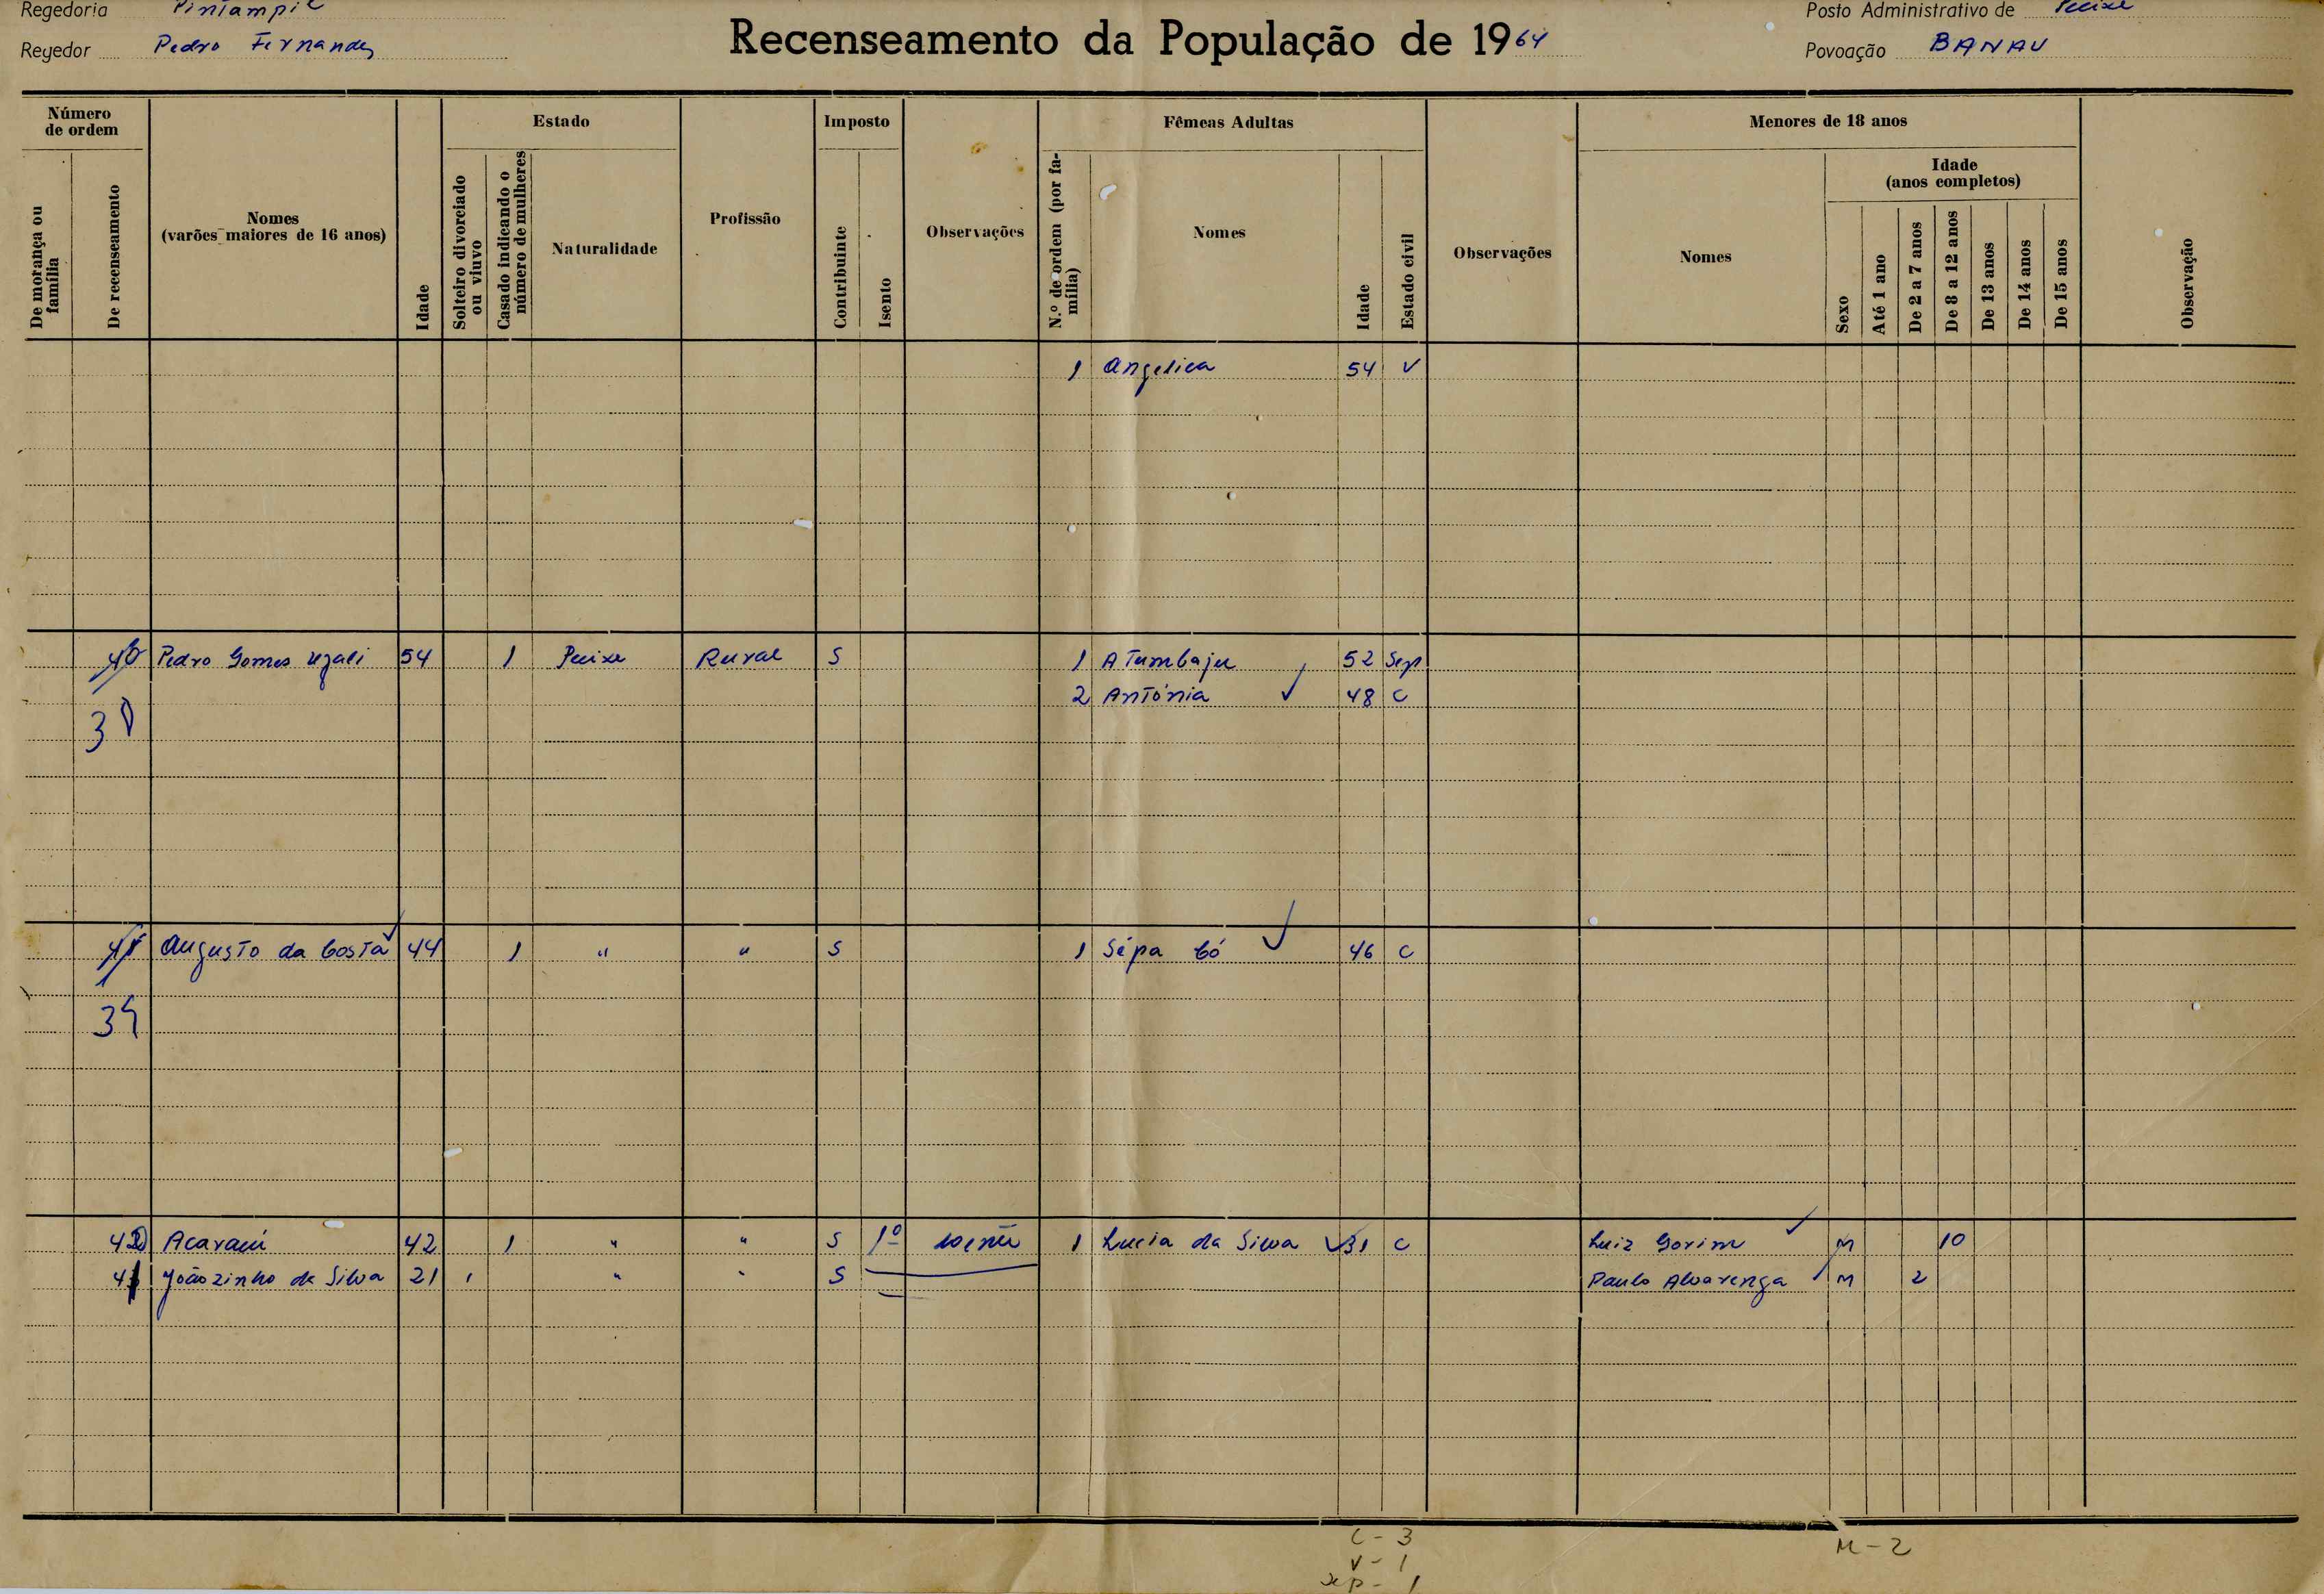 Regedoria Posto Administrativo de Pecixe
Regedor Pedro Fernandes Recenseamento da População de 1964 Povoação BANAU
Número de ordem
De morança ou família
De recenseamento
Nomes (varões maiores de 16 anos)
Idade
Estado
Solteiro divorciado ou viuvo
Casado indicando o número de mulheres
Naturalidade
Profissão
Imposto
Contribuinte
Isento
Observações
Fêmeas Adultas
N.º de ordem (por família)
Nomes
Idade
Estado civil
Observações
Menores de 18 anos
Nomes
Idade (anos completos)
Sexo
Até 1 ano
De 2 a 7 anos
De 8 a 12 anos
De 13 anos
De 14 anos
De 15 anos
Observação
1 Angelica 54 V
40 Pedro Gomes 54 1 Pecixe Rural S 1 Atumbaju 52 Sep
2 Antónia 48 C
38
41 Augusto da Costa 44 1 " " S 1 Sépa Có 46 C
39
Acaraú 42 1 " " S 1º 1 Lucia da Silva 31 C Luiz Gorim M 10
41 Joãozinho da Silva 21 1 " " S Paulo Alvarenga M 2
C - 3
V - 1
Sep - 1
M - 2